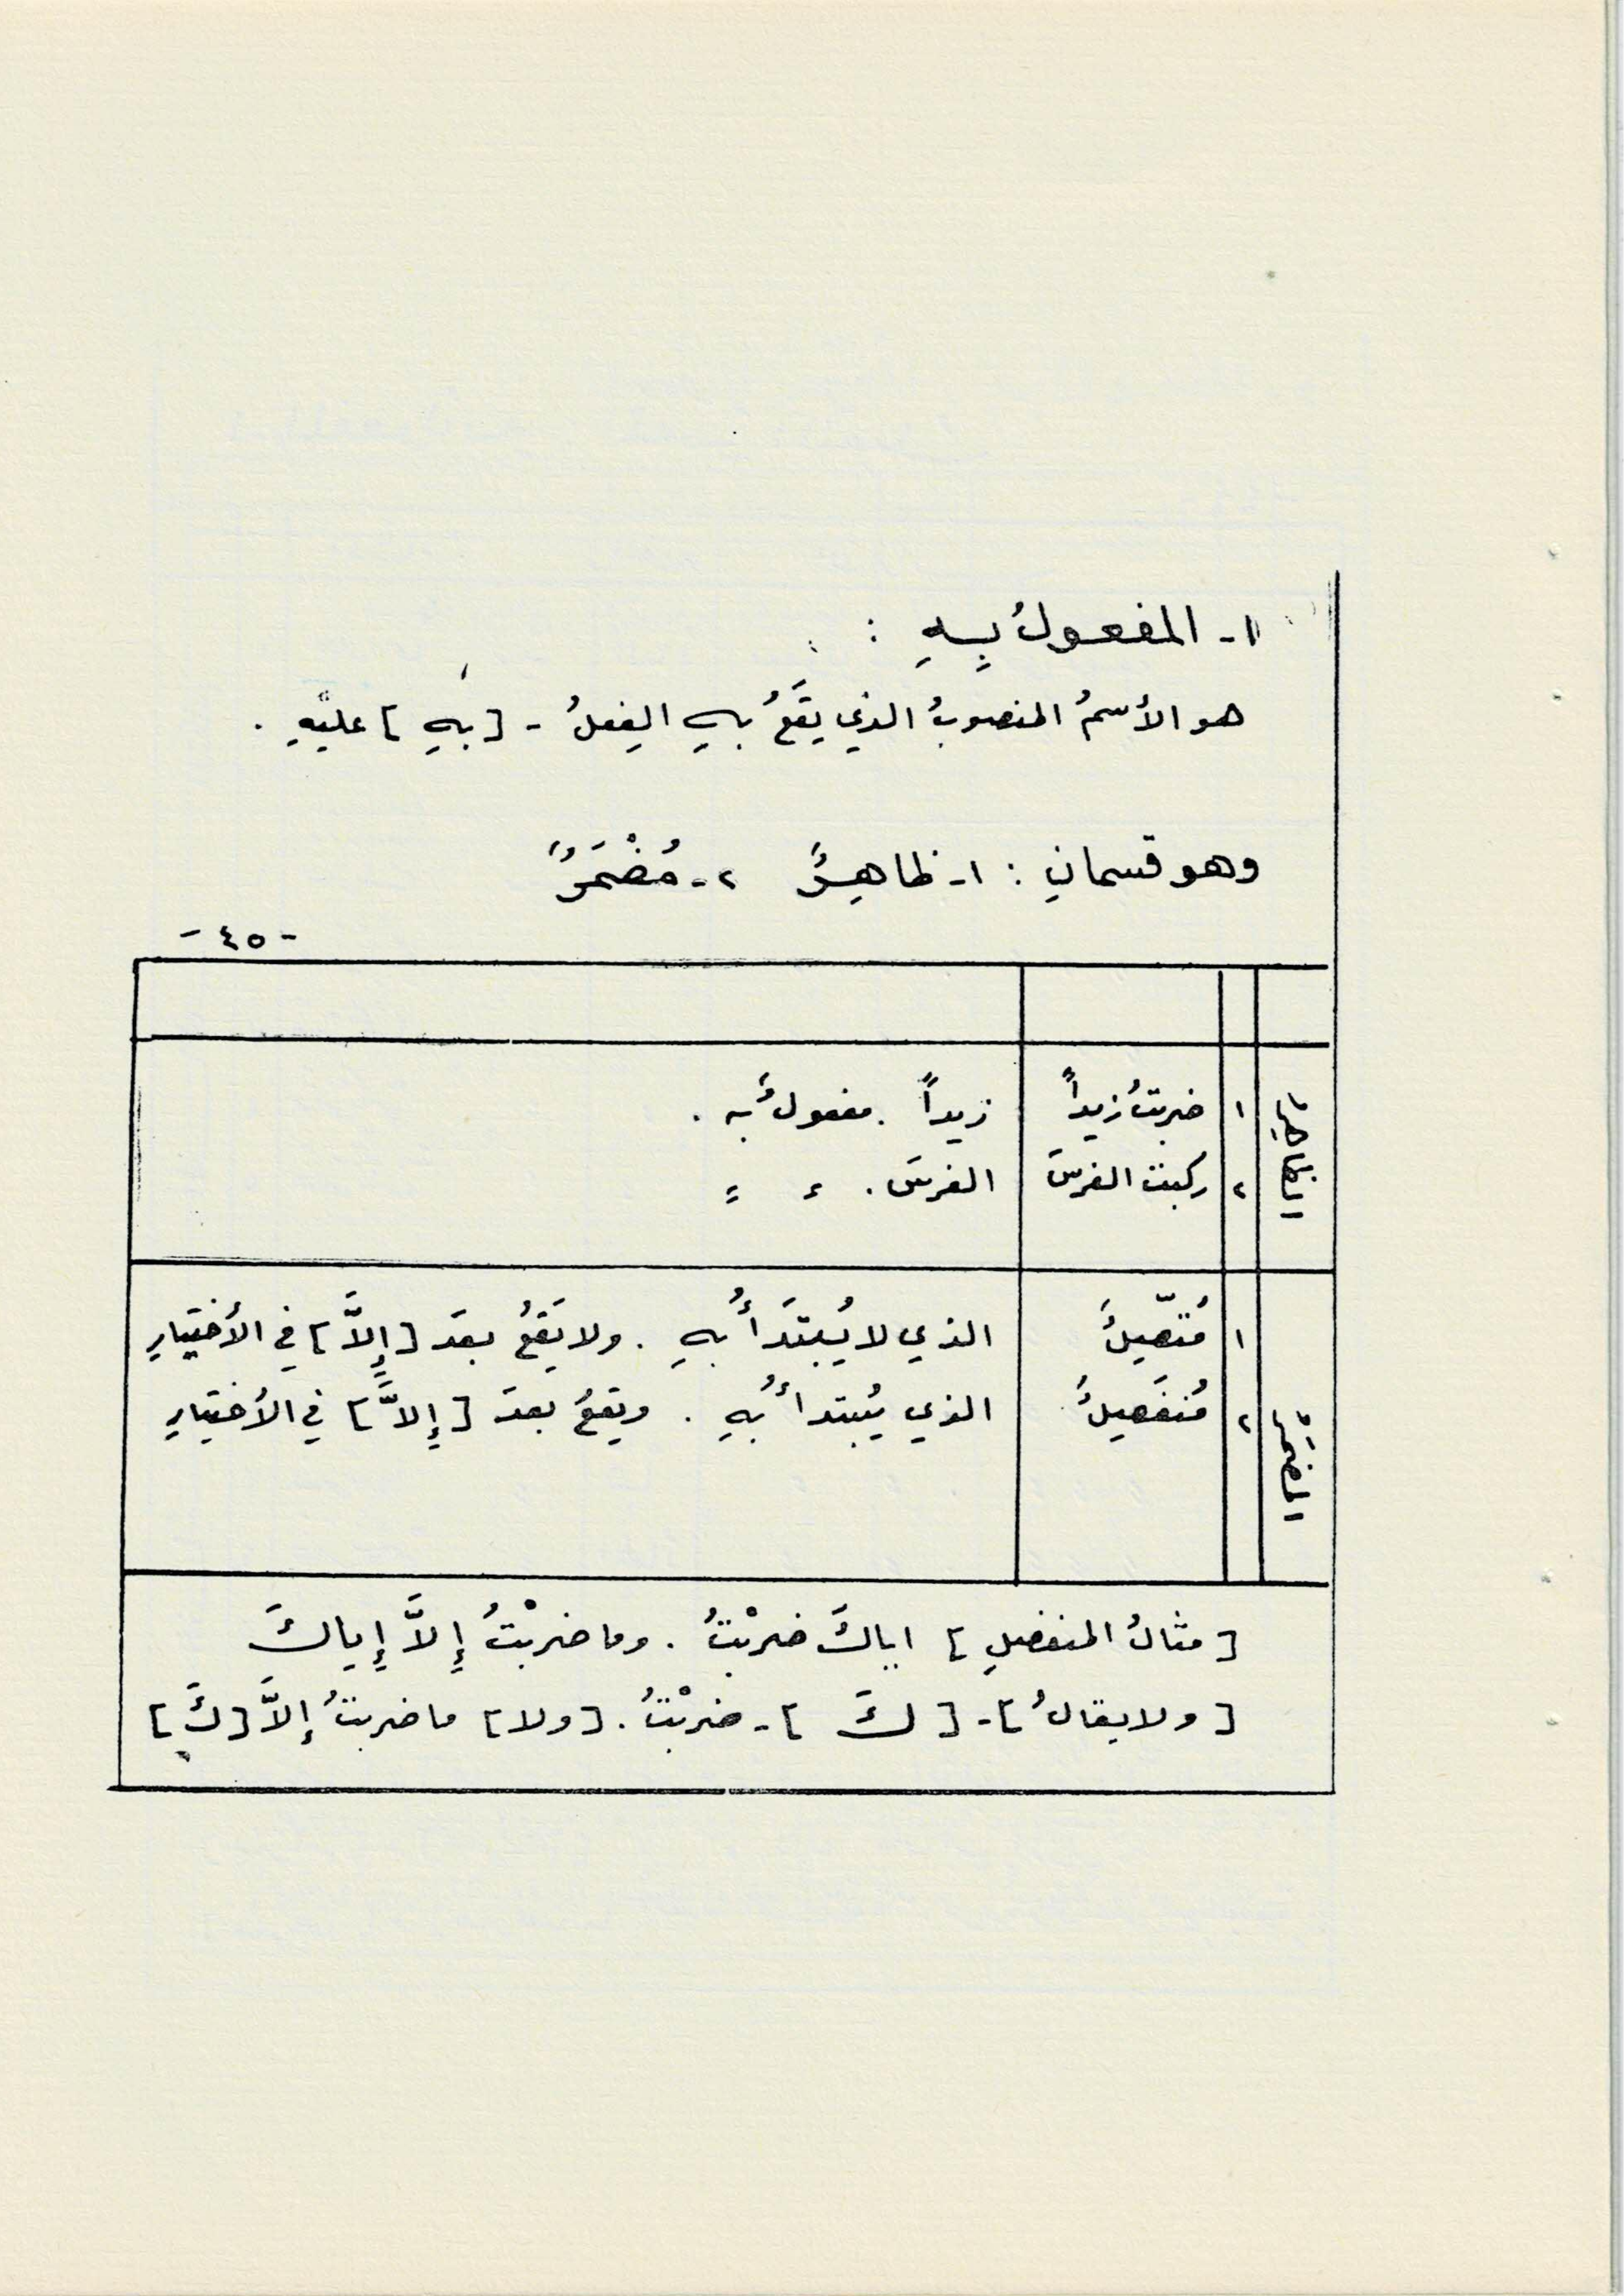 ١- المفعولُ بِهِ :
هو الأسمُ المنصوبُ الذي يَقَعُ بهِ الفِعلُ - [بهِ] عليْهِ .
وهو قسمانِ : ١- ظاهِرٌ ٢- مُضْمَرٌ
- ٤٥ -
الظاهِرُ
١ ضربتُ زيداً زيداً . مفعولٌ به .
٢ ركبتُ الفرسَ الفرسَ . = =
المضمَرُ
١ مُتّصِلٌ الذي لا يُبتَدَأُ بهِ . ولا يَقَعُ بعدَ [إِلاَّ] في الأختِيارِ
٢ مُنفَصِلٌ الذي يُبتدأُ بهِ . ويقعُ بعدَ [إِلاَّ] في الأختِيارِ
[مثالُ المنفصلِ] اياكَ ضربْتُ . وما ضربْتُ إِلاَّ إِياكَ
[ولا يقالُ] - [كَ] - ضربْتُ . [ولا] ما ضربتُ إلاَّ [كَ]